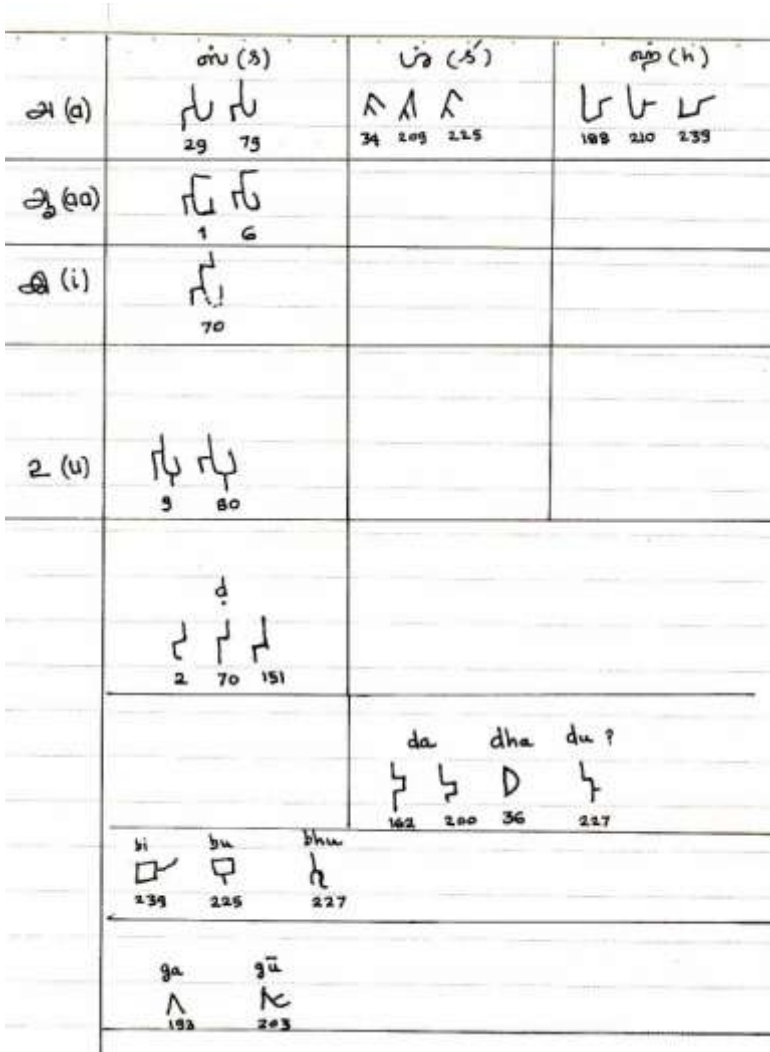 ஸ (s) ஶ (ś) ஹ (h)
அ (a)
29 79 34 209 225 188 210 239
ஆ (aa)
1 6
இ (i)
70
உ (u)
9 80
ḍ
2 70 151
da dha du ?
162 200 36 227
bi bu bhu
239 225 227
ga gū
193 203